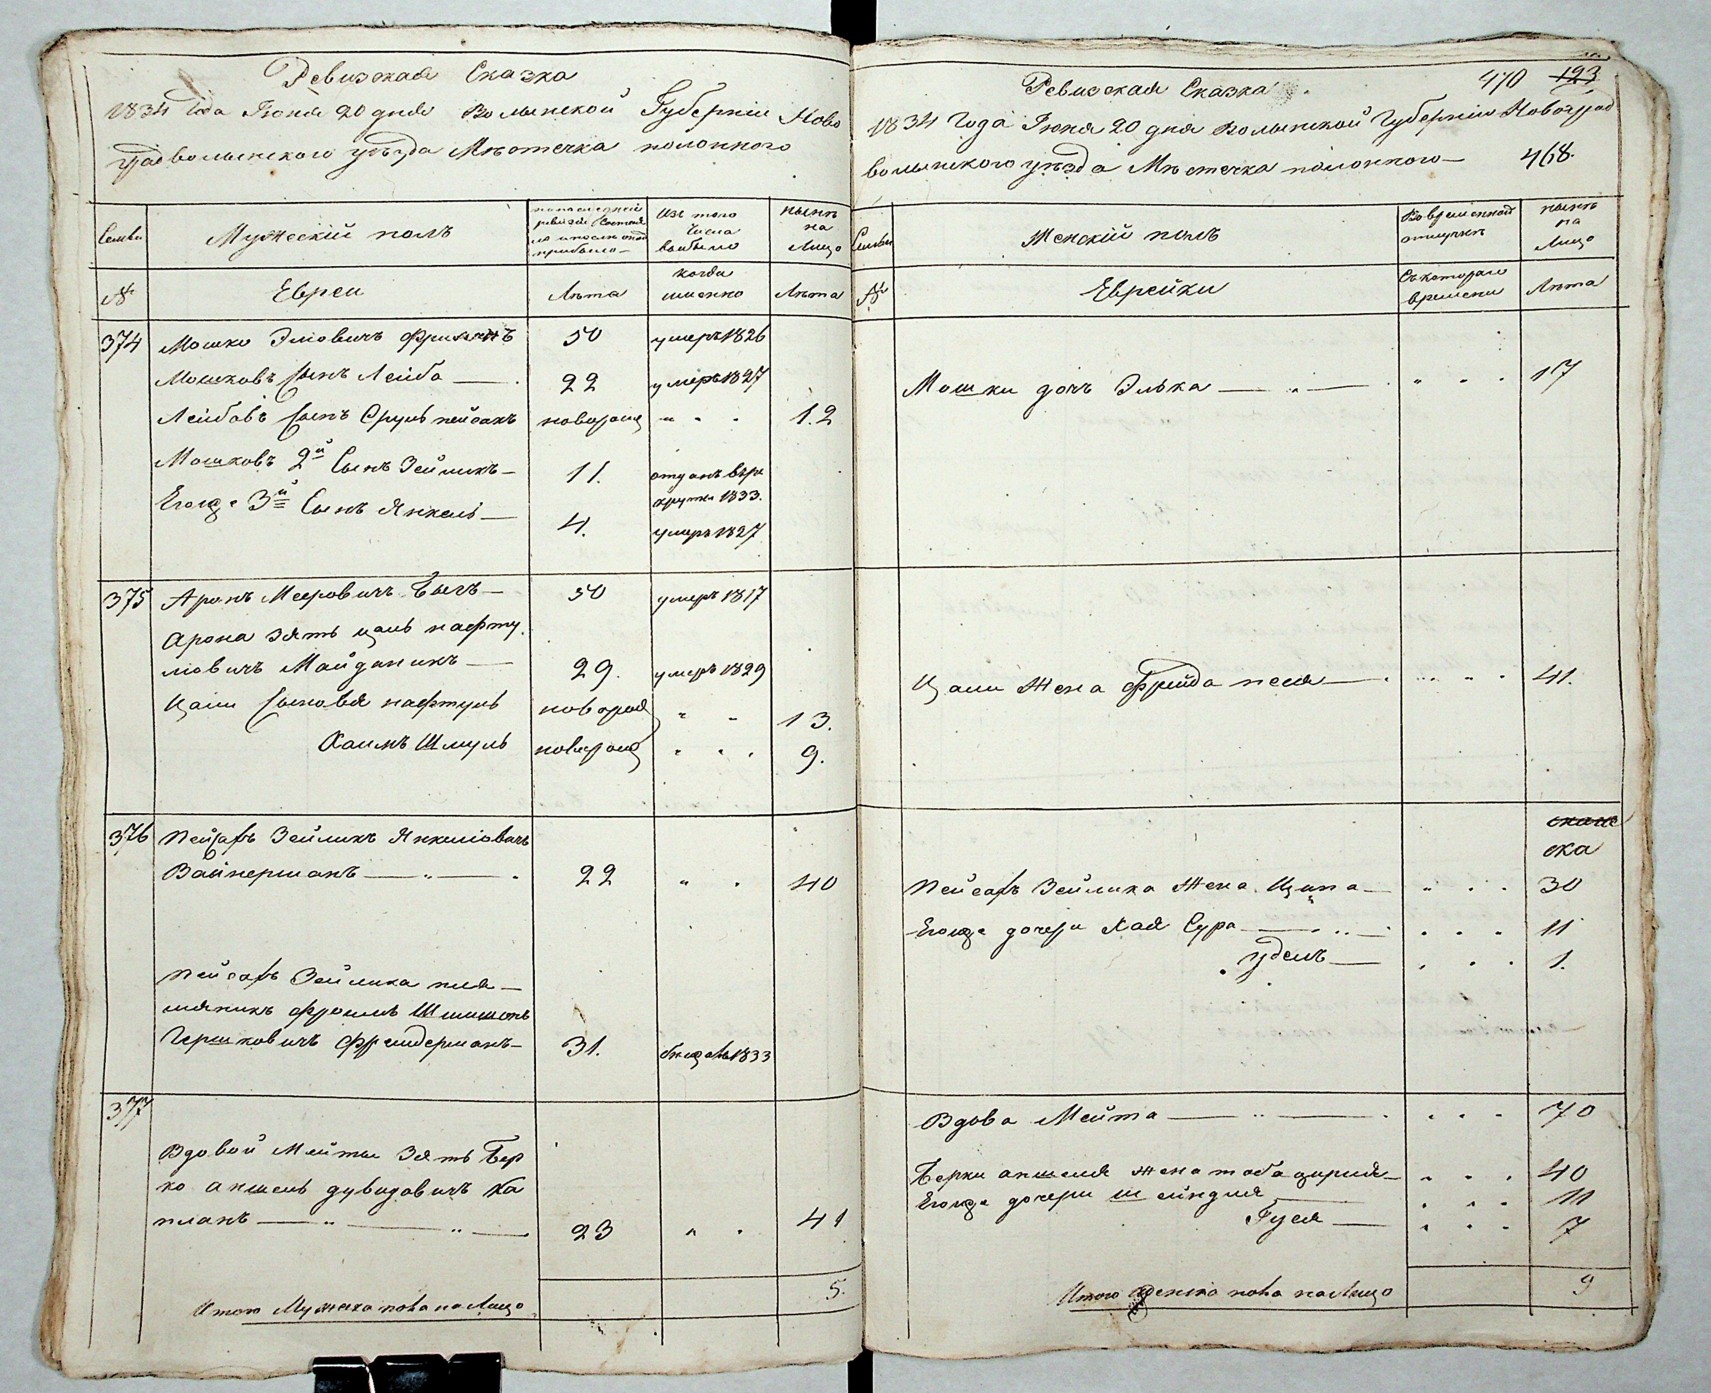 Ревизская Сказка
1834 года Іюня 20 дня Волынской Губерніи Ново
градволынского уезда Местечка полонного
Семьи
Мужескій полъ
по последней ревизіи состояло и после того прибыло
Изъ того числа выбыло
ныне на Лицо
№
Евреи
Лета
когда именно
Лета
374 Мошко Эліовичъ 50 умеръ 1826
Мошковъ сынъ Лейба 22 умеръ 1827
Лейбовъ сынъ Сруль пейсахъ новорож " " 12
Мошковъ 2й Сынъ Зейликъ 11. отданъ в рекруты 1833.
Егоже 3й Сынъ Янкель 4. умеръ 1827
375 Аронъ Мееровичъ Быкъ 50 умеръ 1817
Арона зять цаль нафту
ліовичъ Майданикъ 29. умеръ 1829
Цали сыновья нафтуль новорож " " 13.
Хаимъ Шмуль новорож " " 9.
376 Пейсахъ Зейликъ Янкеліовичъ
Вайнерманъ 22 " " 40
Пейсахъ Зейлика пле
мяникъ Фроимъ Шимшонъ
Гершковичъ 31. 1833
377
Вдовой Мейты Зять Бер
ко аншель дувидовичъ Ка
планъ 23 " " 41
Итого Мужеска пола на Лицо 5.
Ревизская Сказка 470 123
1834 Года Іюня 20 дня Волынской Губерніи Новоград
волынского уезда Местечка полонного 468.
Семьи
Женскій полъ
Во временной отлучке
ныне на Лицо
№
Еврейки
Съ котораго времени
Лета
Мошки дочь Элька " " 17
Цали Жена Фрейда песя " " 41.
ска
Пейсахъ Зейлика Жена Ципа " " 30
Егоже дочери Хая Сура " " 11
удель " " 1.
Вдова Мейта " " 70
Берки аншеля жена тоба цирля " " 40
Егоже дочери шейндля " " 11
Гуся " " 7
Итого женска пола на Лицо 9